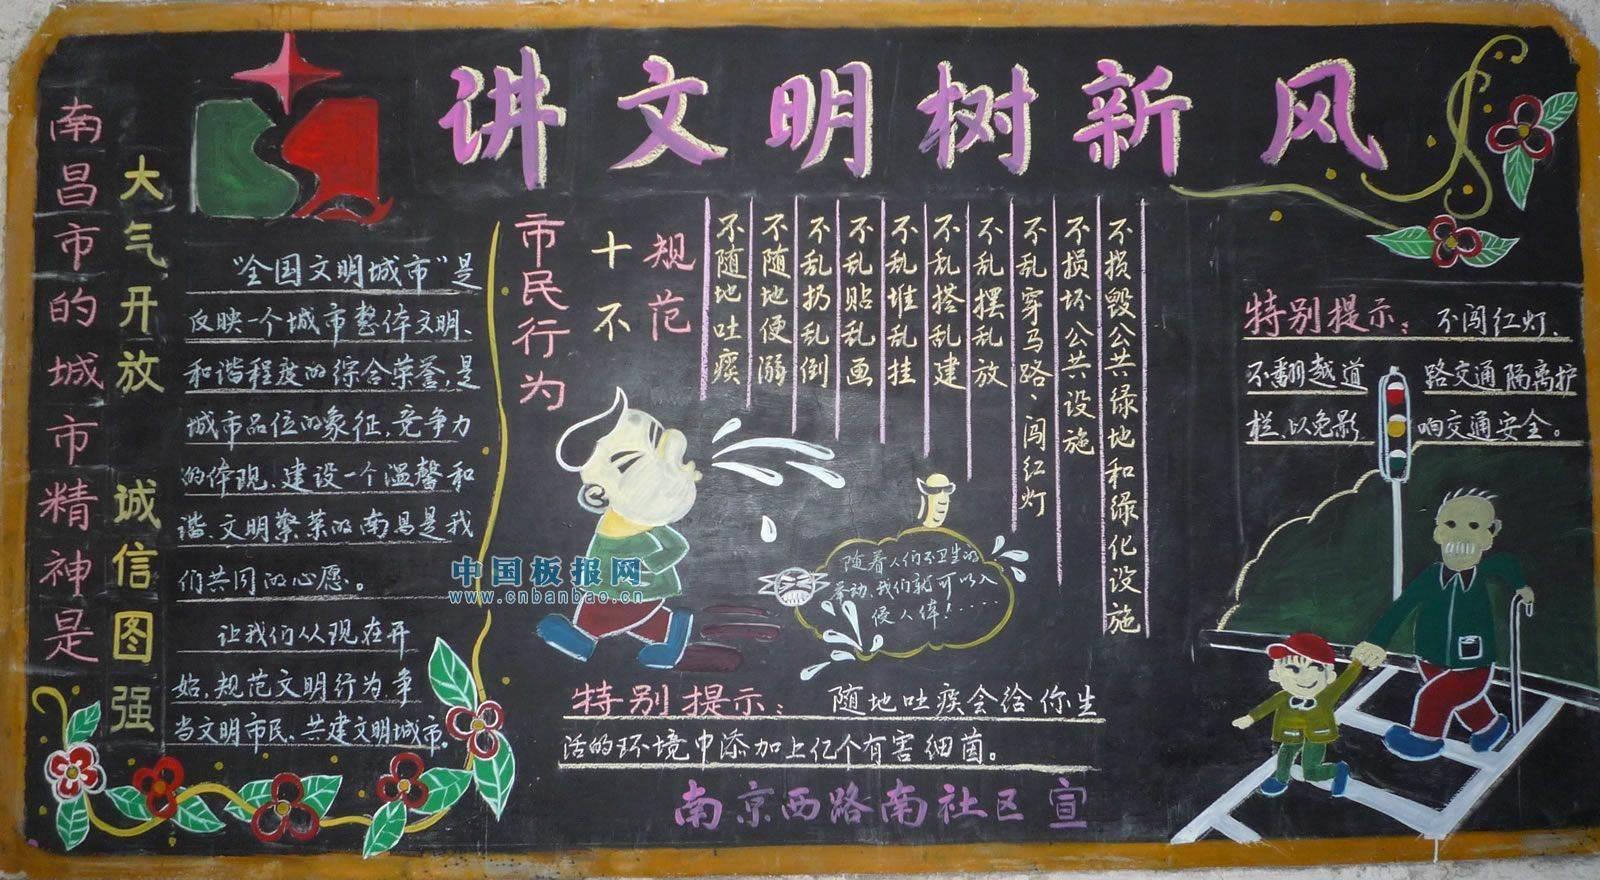 讲文明树新风
南昌市的城市精神是
大气开放 诚信图强
“全国文明城市”是
反映一个城市整体文明、
和谐程度的综合荣誉,是
城市品位的象征,竞争力
的体现、建设一个温馨和
谐、文明繁荣的南昌是我
们共同的心愿。
让我们从现在开
始,规范文明行为,争
当文明市民、共建文明城市。
市民行为
十不
规范
不随地吐痰
不随地便溺
不乱扔乱倒
不乱贴乱画
不乱堆乱挂
不乱搭乱建
不乱摆乱放
不乱穿马路、闯红灯
不损坏公共设施
不损毁公共绿地和绿化设施
随着人们不卫生的
举动,我们就可以入
侵人体!·····
特别提示: 随地吐痰会给你生
活的环境中添加上亿个有害细菌。
南京西路南社区宣
特别提示: 不闯红灯、
不翻越道路交通隔离护
栏,以免影响交通安全。
中国板报网
www.cnbanbao.cn